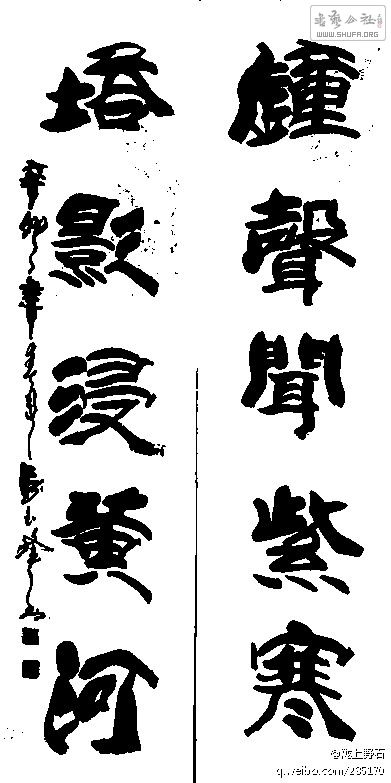 鐘聲聞紫寒
塔影浸黄河
辛卯
書藝公社
WWW.SHUFA.ORG
上野石
q.weibo.com/235170